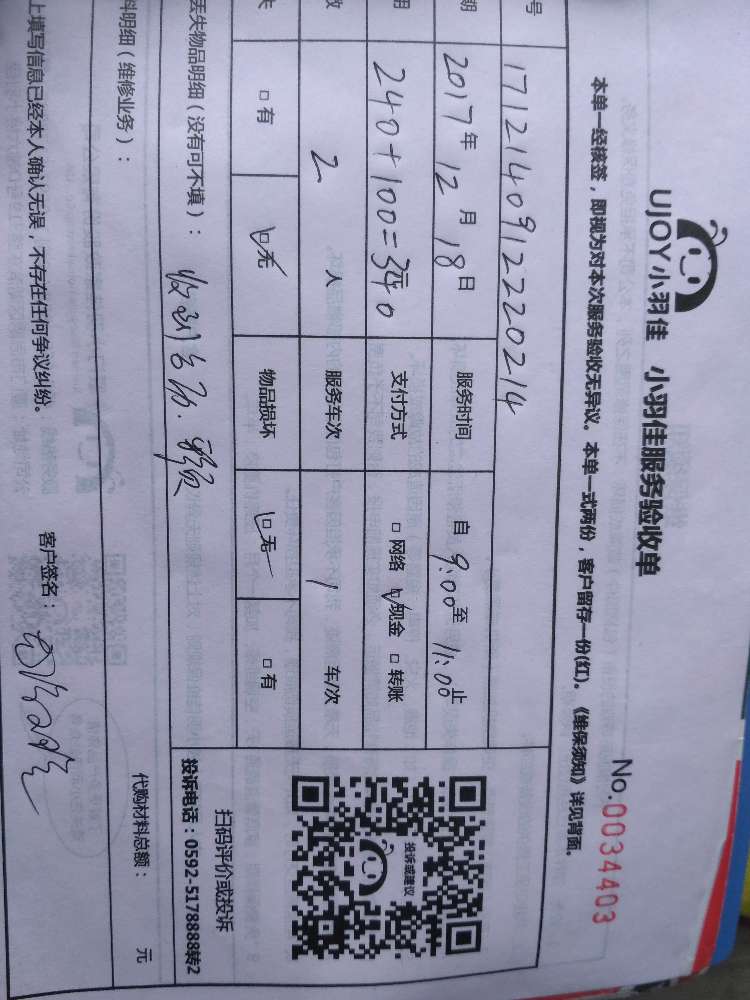 UJOY小羽佳 小羽佳服务验收单
No.0034403
本单一经核签，即视为对本次服务验收无异议。本单一式两份，客户留存一份(红)。《维保须知》详见背面。
号 1712140912220214
期 2017年12月18日 服务时间 自9:00至11:00止
用 240+100=340 元 支付方式 □网络 ☑现金 □转账
数 2 人 服务车次 1 车/次
失 □有 ☑无 物品损坏 ☑无 □有
投诉或建议
扫码评价或投诉
投诉电话：0592-5178888转2
丢失物品明细（没有可不填）：
料明细（维修业务）：
代购材料总额： 元
上填写信息已经本人确认无误，不存在任何争议纠纷。 客户签名：